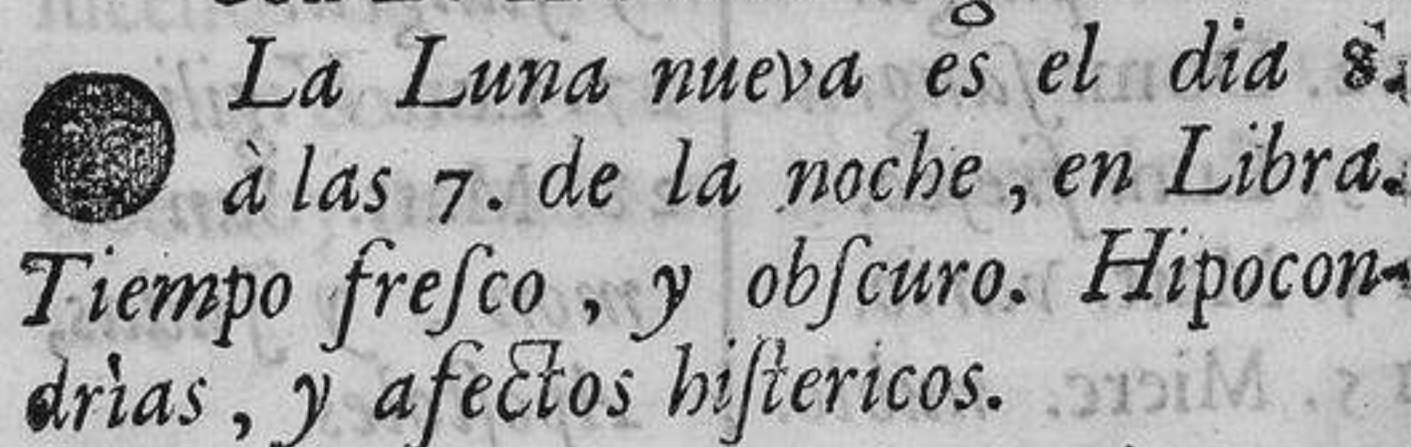 La Luna nueva es el dia 8.
à las 7. de la noche, en Libra.
Tiempo freſco, y obſcuro. Hipocon-
drias, y afectos hiſtericos.